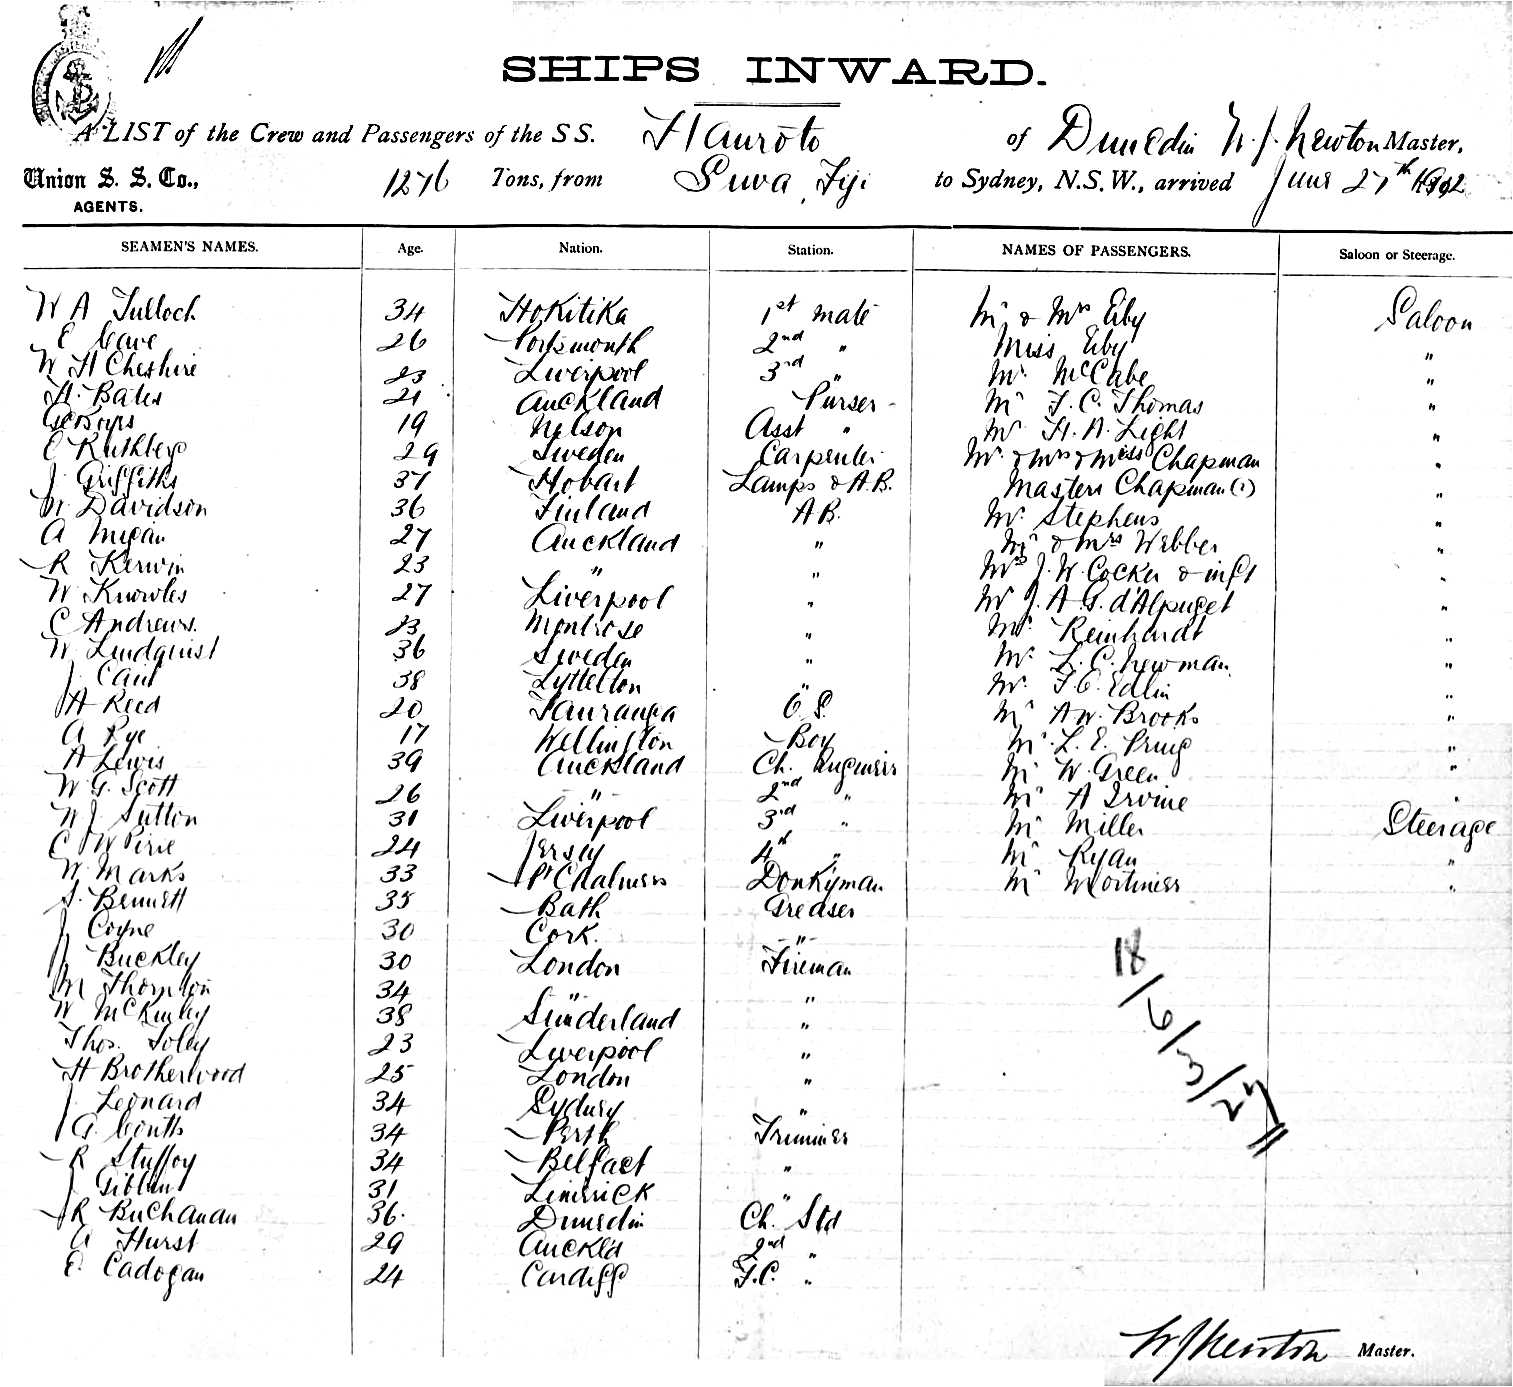 SHIPS INWARD.
A LIST of the Crew and Passengers of the SS. Hauroto of Dunedin W. J. Newton Master,
Union S. S. Co., 1276 Tons, from Suva, Fiji to Sydney, N.S.W., arrived June 27th 1902
AGENTS.
SEAMEN'S NAMES. Age. Nation. Station. NAMES OF PASSENGERS. Saloon or Steerage.
W A Tulloch 34 Hokitika 1st mate Mr & Mrs Eby Saloon
E Cave 26 Portsmouth 2nd " Miss Eby "
W H Cheshire 23 Liverpool 3rd " Mr McCabe "
H. Bates 21 Auckland Purser Mr F. C. Thomas "
19 Nelson Asst " Mr H. A. Light "
C 29 Sweden Carpenter Mr & Mrs & Miss Chapman "
J Griffiths 37 Hobart Lamps & A.B. Masters Chapman "
W Davidson 36 Finland A.B. Mr Stephens "
A 27 Auckland " Mr & Mrs Webber "
R Kerwin 23 " " Mrs J. W. Cocker & inft "
W Knowles 27 Liverpool " Mr J. A. G. d'Alpuget "
C Andrews. 23 Montrose " Mr Reinhardt "
W Lindquist 36 Sweden " Mr L. C. Newman "
J 38 Lyttelton " Mr F. C. Edlin "
H Reed 20 Tauranga O.S. Mr A W. Brooks "
A Pye 17 Wellington Boy Mr L. E. Pring "
A Lewis 39 Auckland Ch. Engineer Mr W. Green "
W G. Scott 26 " 2nd " Mr A Irvine "
W J Sutton 31 Liverpool 3rd " Mr Miller Steerage
C W Pirie 24 Jersey 4th " Mr Ryan "
W Marks 33 Pt Chalmers Donkyman Mr Mortimer "
J. Bennett 35 Bath Greaser
J Coyne 30 Cork. "
J Buckley 30 London Fireman
M Thornton 34 " "
W McKinley 38 Sunderland "
Thos. Foley 23 Liverpool "
H Brotherwood 25 London "
J Leonard 34 Sydney "
G. Coutts 34 Perth Trimmer
R 34 Belfast "
J Giblin 31 Limerick "
R Buchanan 36 Dunedin Ch. Std
A Hurst 29 Auckld 2nd "
E. Cadogan 24 Cardiff F.C. "
18/6/3/27
W J Newton Master.